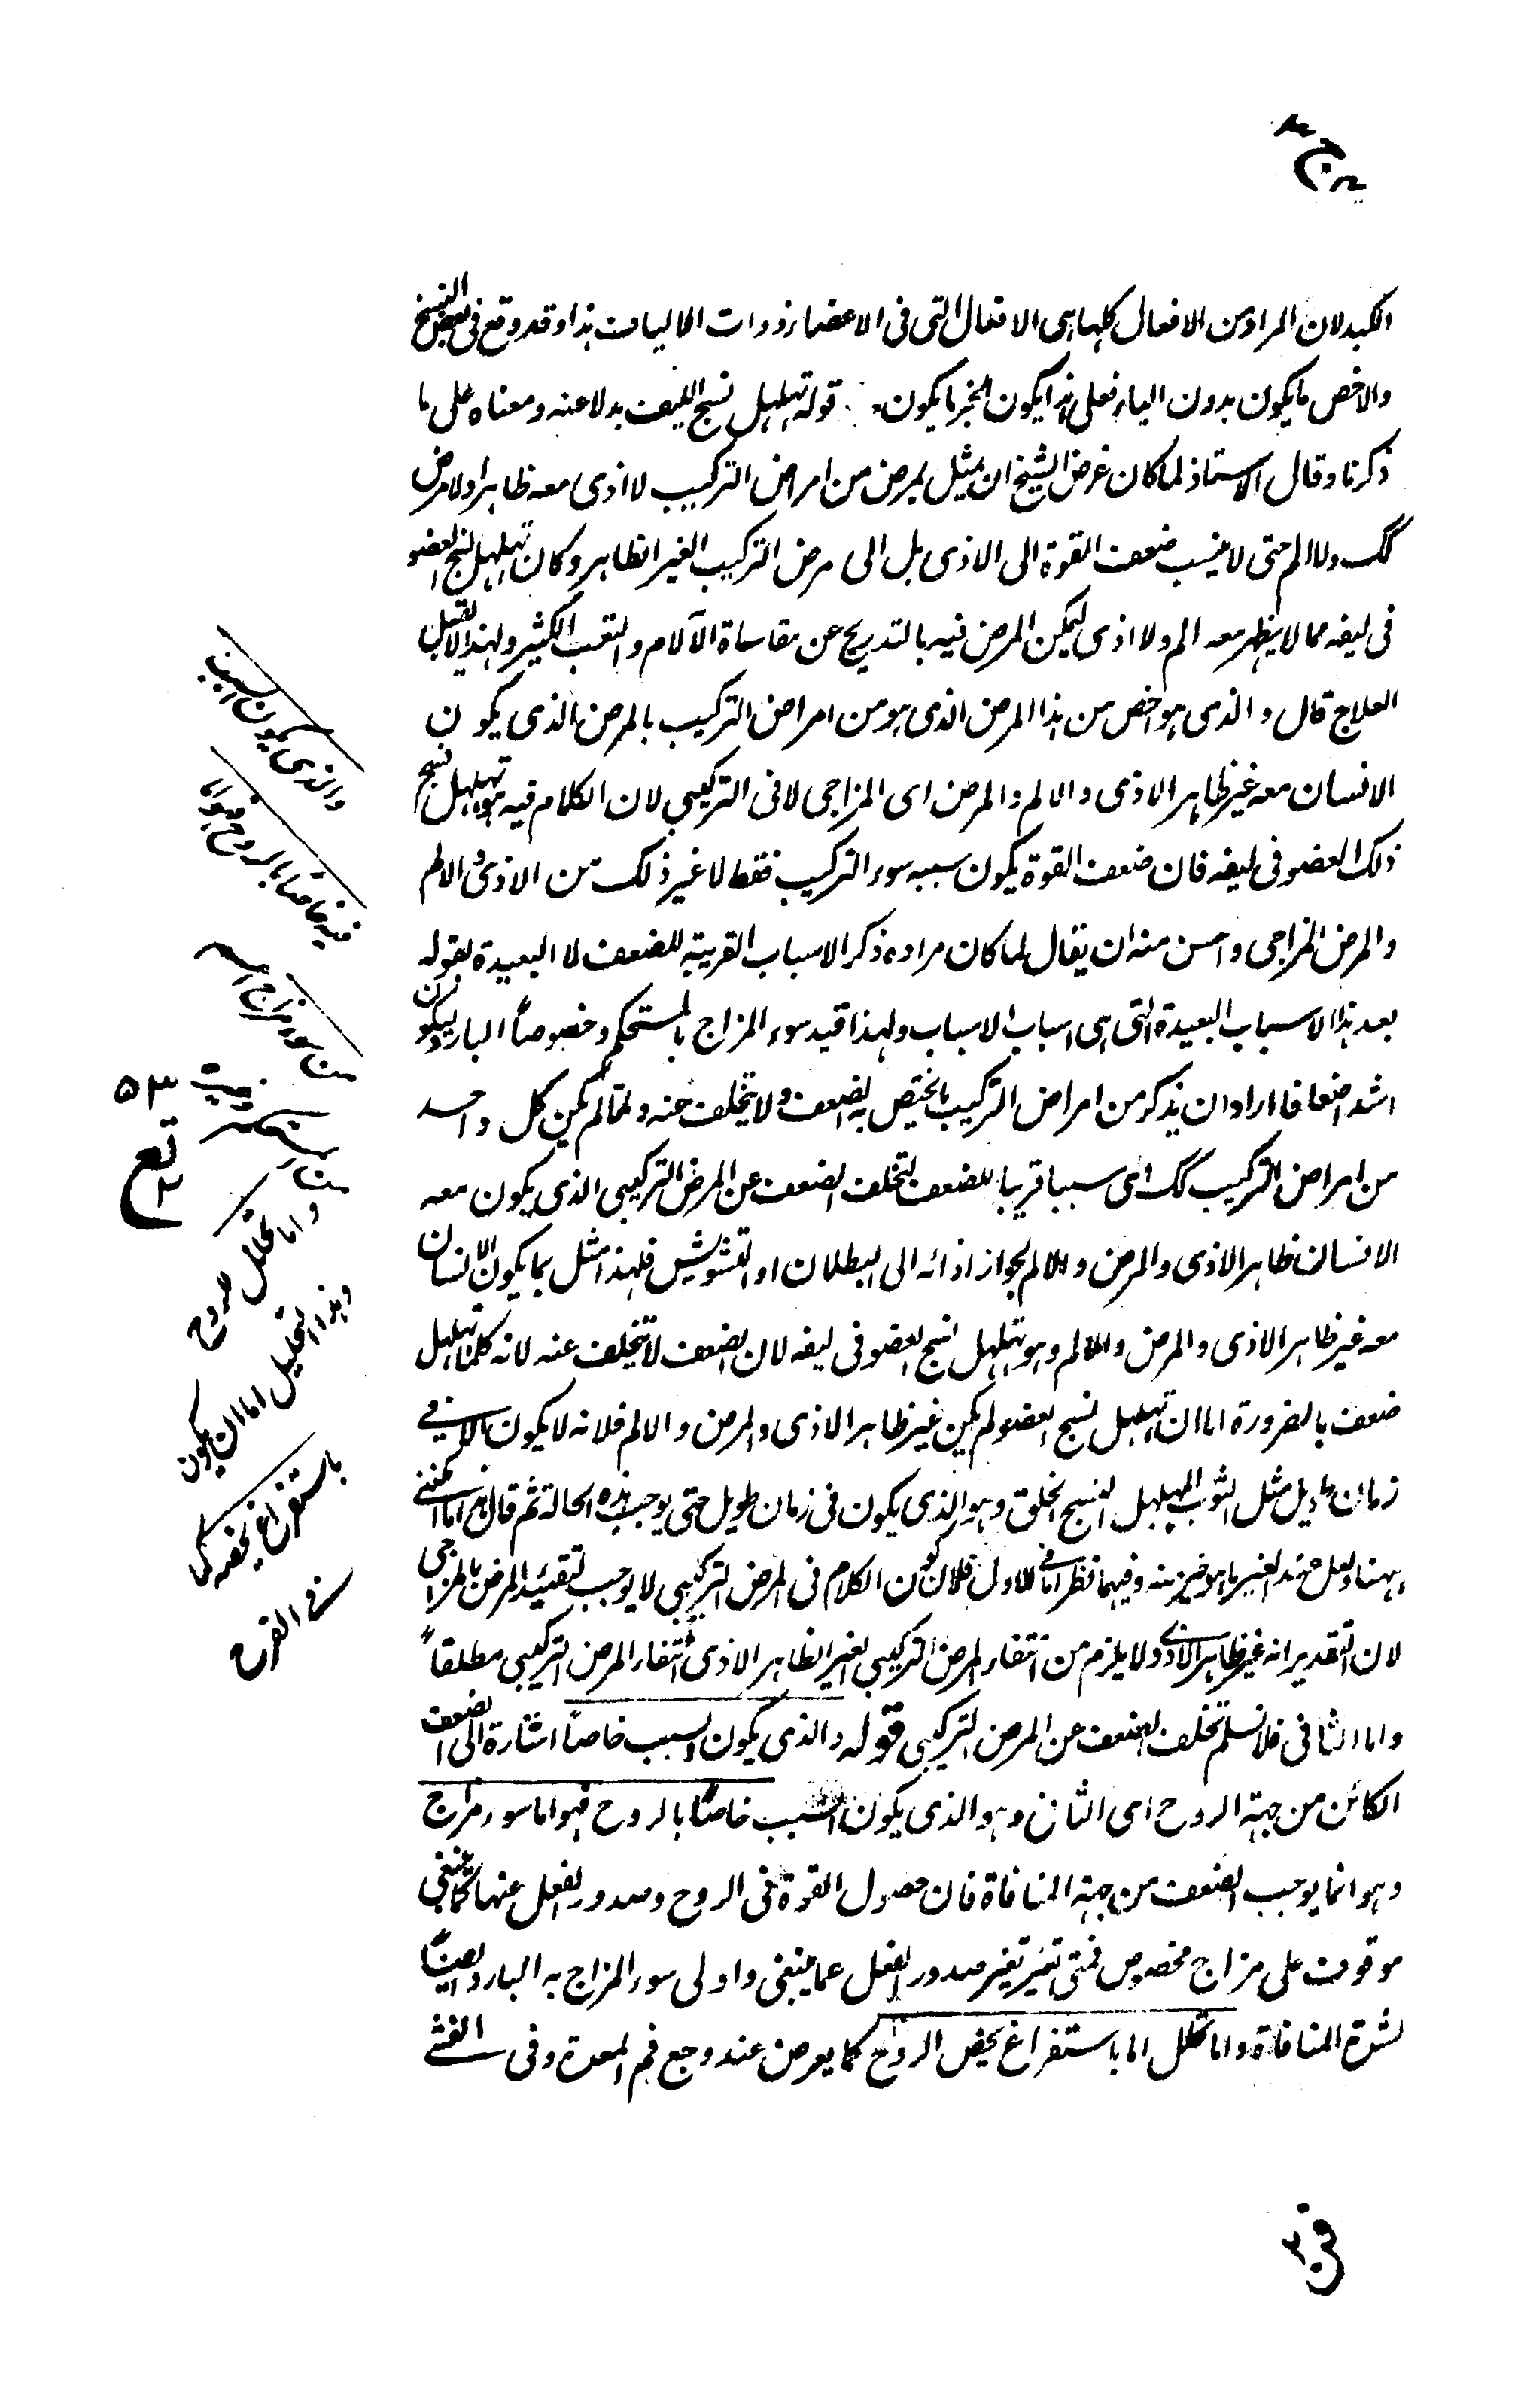 الكبد لان المراد من الافعال كلها هى الافعال التى فى الاعضاء ذوات الاليات هذا وقد وقع فى بعض النسخ
والاخص ما يكون بدون الياء فعلى هذا يكون الخبر ما يكون قوله تهلهل نسج الليف بدلا عنه ومعناه على ما
ذكرنا وقال الاستاذ لما كان غرض الشيخ ان يمثل بمرض من امراض التركيب لا اذى معه ظاهرا ولا مرض
كك ولا الم حتى لا ينسب ضعف القوة الى الاذى بل الى مرض التركيب الغير الظاهر وكان تهلهل نسج العضو
فى ليفه مما لا يظهر معه الم ولا اذى ليمكن المرض فيه بالتدريج عن مقاساة الآلام والتعب الكثير ولهذا لا يقبل
العلاج قال والذى هو اخص من هذا المرض الذى هو من امراض التركيب بالمرض الذى يكون
الانسان معه غير ظاهر الاذى والالم والمرض اى المزاجى لا فى التركيبى لان الكلام فيه هو تهلهل نسج
ذلك العضو فى ليفه فان ضعف القوة يكون سببه سوء التركيب فقط لا غير ذلك من الاذى والالم
والمرض المزاجى واحسن منه ان يقال لما كان مراده ذكر الاسباب القريبة للضعف لا البعيدة لقوله
بعد هذا الاسباب البعيدة التى هى اسباب الاسباب ولهذا قيد سوء المزاج بالمستحكم وخصوصاً البارد ليكون
اشد اضعافا اراد ان يذكر من امراض التركيب ما يختص به الضعف ولا يتخلف عنه ولما لم يكن كل واحد
من امراض التركيب كك اى سببا قريبا للضعف لتخلف الضعف عن المرض التركيبى الذى يكون معه
الانسان ظاهر الاذى والمرض والالم لجواز ادائه الى البطلان او التشويش فلهذا مثل بما يكون الانسان
معه غير ظاهر الاذى والمرض والالم وهو تهلهل نسج العضو فى ليفه لان الضعف لا يتخلف عنه لانه كلما تهلهل
ضعف بالضرورة اما ان تهلهل نسج العضو لم يكن غير ظاهر الاذى والمرض والالم فلانه لا يكون الا فى
زمان طويل مثل الثوب المهلهل النسج الخلق وهو الذى يكون فى زمان طويل حتى يوجب هذه الحالة ثم قال هذا ما امكننى
ههنا ولعل عند الغير ما هو خير منه وفيهما نظر اما فى الاول فلان كون الكلام فى المرض التركيبى لا يوجب تقييد المرض بالمزاجى
لان التقدير انه غير ظاهر الاذى ولا يلزم من انتفاء المرض التركيبى الغير الظاهر الاذى انتفاء المرض التركيبى مطلقاً
واما الثانى فلا نسلم تخلف الضعف عن المرض التركيبى قوله والذى يكون السبب خاصاً اشارة الى الضعف
الكائن من جهة الروح اى الثانى وهو الذى يكون السبب خاصاً بالروح فهو اما سوء مزاج
وهو انما يوجب الضعف من جهة المنافاة فان حصول القوة فى الروح وصدور الفعل عنها كما ينبغى
موقوف على مزاج مخصوص فمتى تغير تغير صدور الفعل عما ينبغى واولى سوء المزاج به البارد ايضاً
لشدة المنافاة واما تحلل اما باستفراغ يخص الروح كما يعرض عند وجع فم المعدة وفى الغشى
والذى يكون السبب
فيه خاصا بالروح فهو اما
من سوء مزاج
٥٣
تع
واما تحلل روح
وهذا التحليل اما ان يكون
باستفراغ يخصه كما
فى الفرح